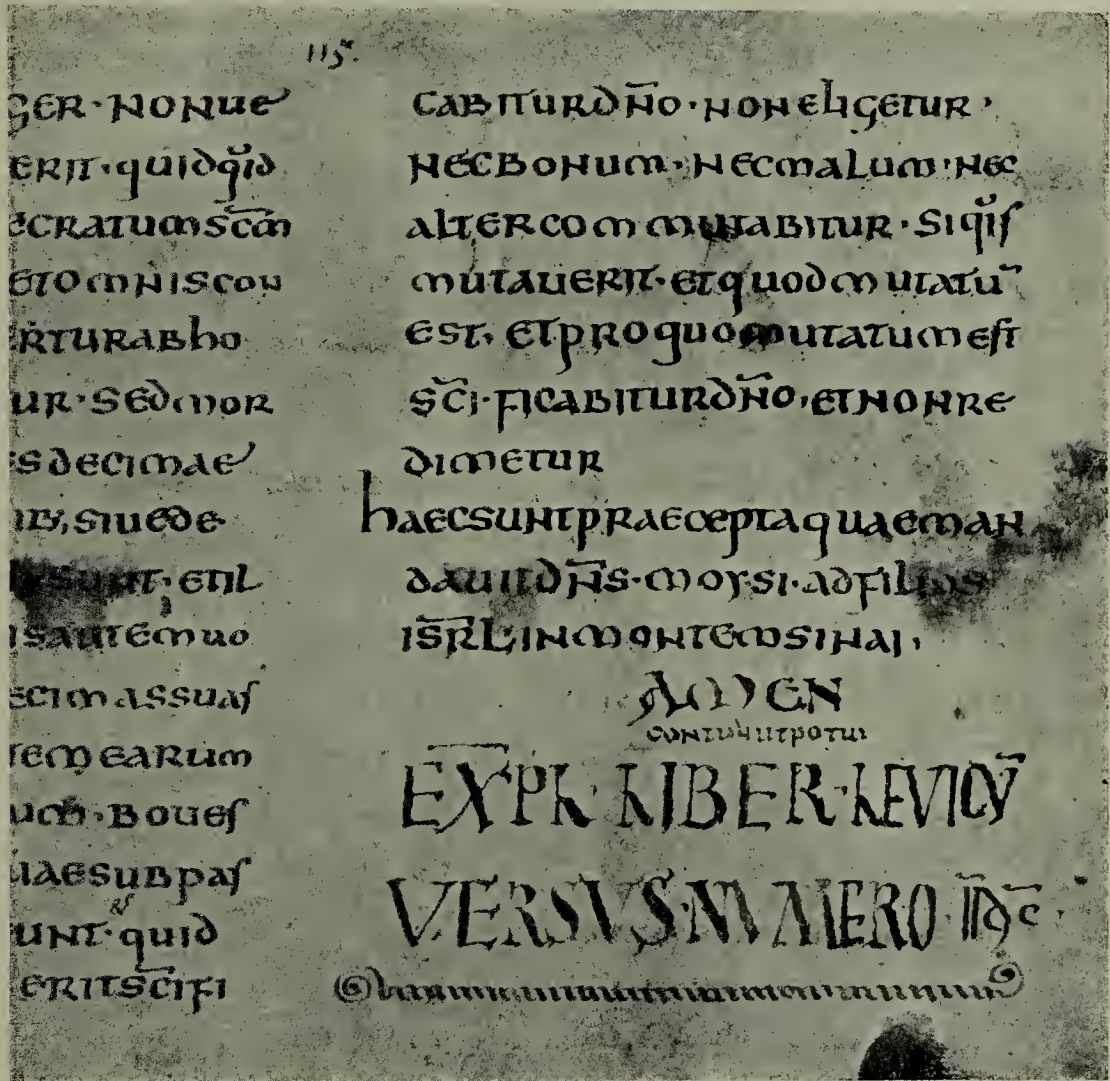 115.
GER·NONUE
ERIT·QUIDQID
ECRATUMSC̅M
ETOMNISCON
RTURABHO
UR·SEDMOR
SDECIMAE
IB;SIUEDE
SUNT·ETIL
ISAUTEMUO
ECIMASSUAS
TEMEARUM
UM·BOUES
UAESUBPAS
UNT·QUID
ERITSC̅IFI
CABITURDN̅O·NONELIGETUR,
NECBONUM·NECMALUM·NEC
ALTERCOMMUTABITUR·SIQIS
MUTAUERIT·ETQUODMUTATU̅
EST, ETPROQUOMUTATUMEST
SC̅I·FICABITURDN̅O,ETNONRE
DIMETUR
HAECSUNTPRAECEPTAQUAEMAN
DAUITDN̅S·MOYSI·ADFILIOS
ISR̅L,INMONTEMSINAI,
AMEN
CONTULIUTPOTUI
EXPL· LIBER·LEVICỸ
VERSVS·NVMERO